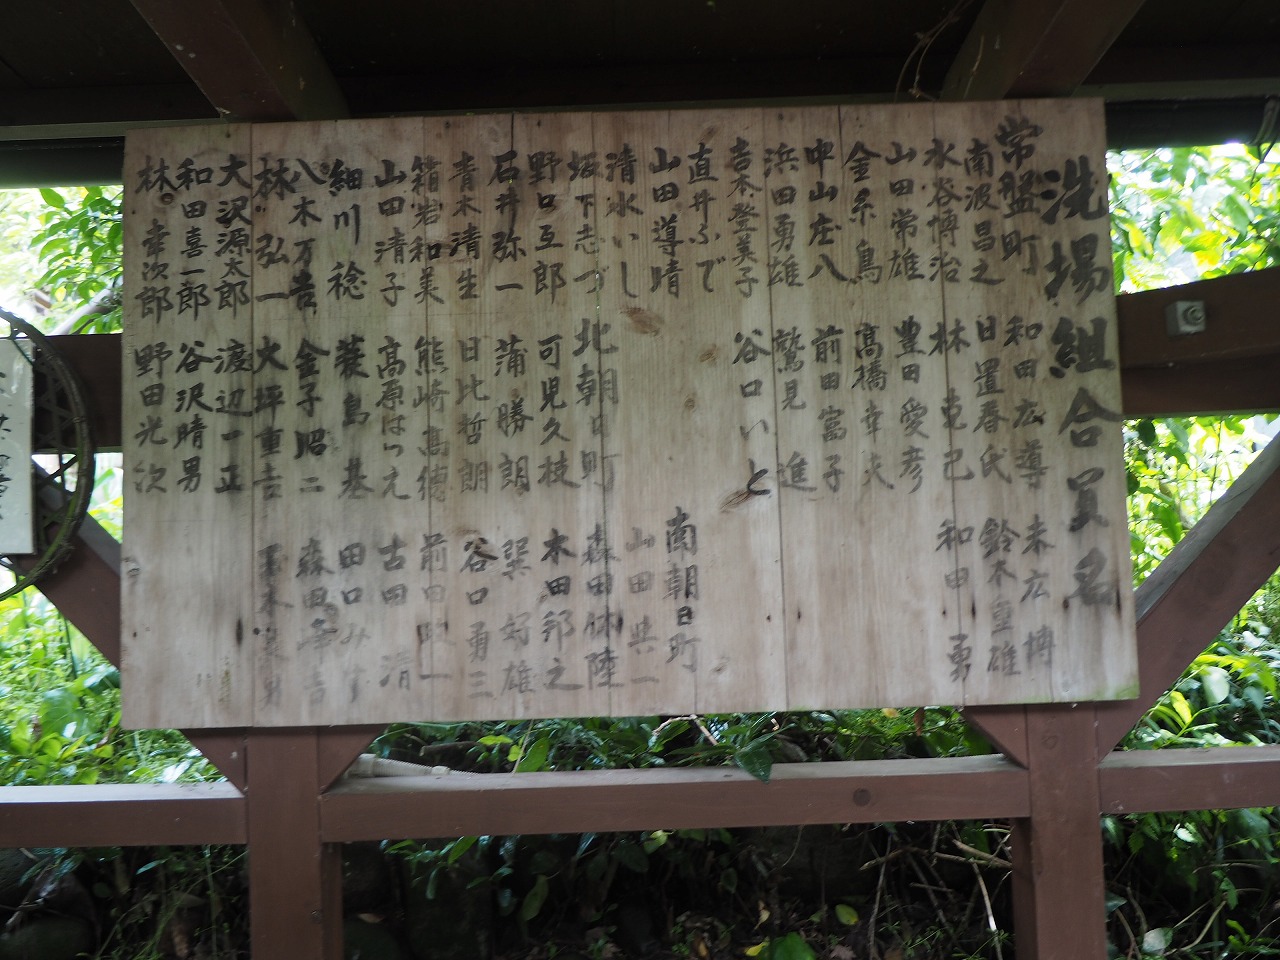 洗場組合員名
常盤町
和田広導
末広 博
南波昌之
日置春氏
鈴木重雄
水谷博治
林 克己
和田 勇
山田常雄
豊田愛彦
金糸鳥
高橋幸夫
中山庄八
前田富子
浜田勇雄
鷲見 進
吉本登美子
谷口いと
直井ふで
南朝日町
山田導晴
山田典一
清水いし
北朝日町
森田休陸
坂下志づ
可児久枝
木田邦之
野口互郎
蒲 勝朗
巽 好雄
石井弥一
日比哲朗
谷口勇三
青木清生
熊崎高徳
前田
箱岩和美
高原はつえ
古田 清
山田清子
蓑島 基
田口みす
細川 稔
金子昭二
森田幸吉
八木万吉
大坪重吉
林 弘一
渡辺一正
大沢源太郎
谷沢晴男
和田喜一郎
野田光次
林 幸次郎